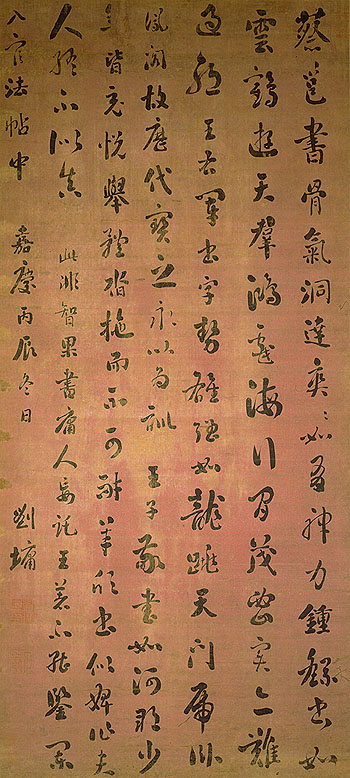 蔡邕書骨氣洞達爽〻如有神力鍾繇書如
雲鶴遊天羣鴻戲海行間茂密實亦難
過 王右軍書字勢雄強如龍跳天門虎臥
鳳閣故歷代寶之永以為訓 王子敬書如河朔少
年皆充悅舉體沓拖而不可耐羊欣書似婢作夫
人終不似真 此非智果書庸人妄託王著不能鑒闌
入官法帖中 嘉慶丙辰冬日 劉墉